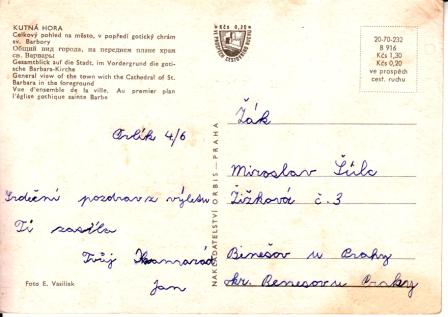 KUTNÁ HORA
Celkový pohled na město, v popředí gotický chrám
sv. Barbory
Общий вид города, на переднем плане храм
св. Варвары
Gesamtblick auf die Stadt, im Vordergrund die goti-
sche Barbara-Kirche
General view of the town with the Cathedral of St.
Barbara in the foreground
Vue d'ensemble de la ville. Au premier plan
l'église gothique sainte Barbe
Orlík 4/6
Srdeční pozdrav z výletu
Ti zasílá
Tvůj Kamarád
Jan
Foto E. Vasiliak
NAKLADATELSTVÍ ORBIS - PRAHA
Kčs 0,20
VE PROSPĚCH CESTOVNÍHO RUCHU
20-70-232
B 916
Kčs 1,30
Kčs 0,20
ve prospěch
cest. ruchu
Žák
Miroslav Šulc
Žižkova č. 3
Benešov u Prahy
okr. Benesov u Prahy